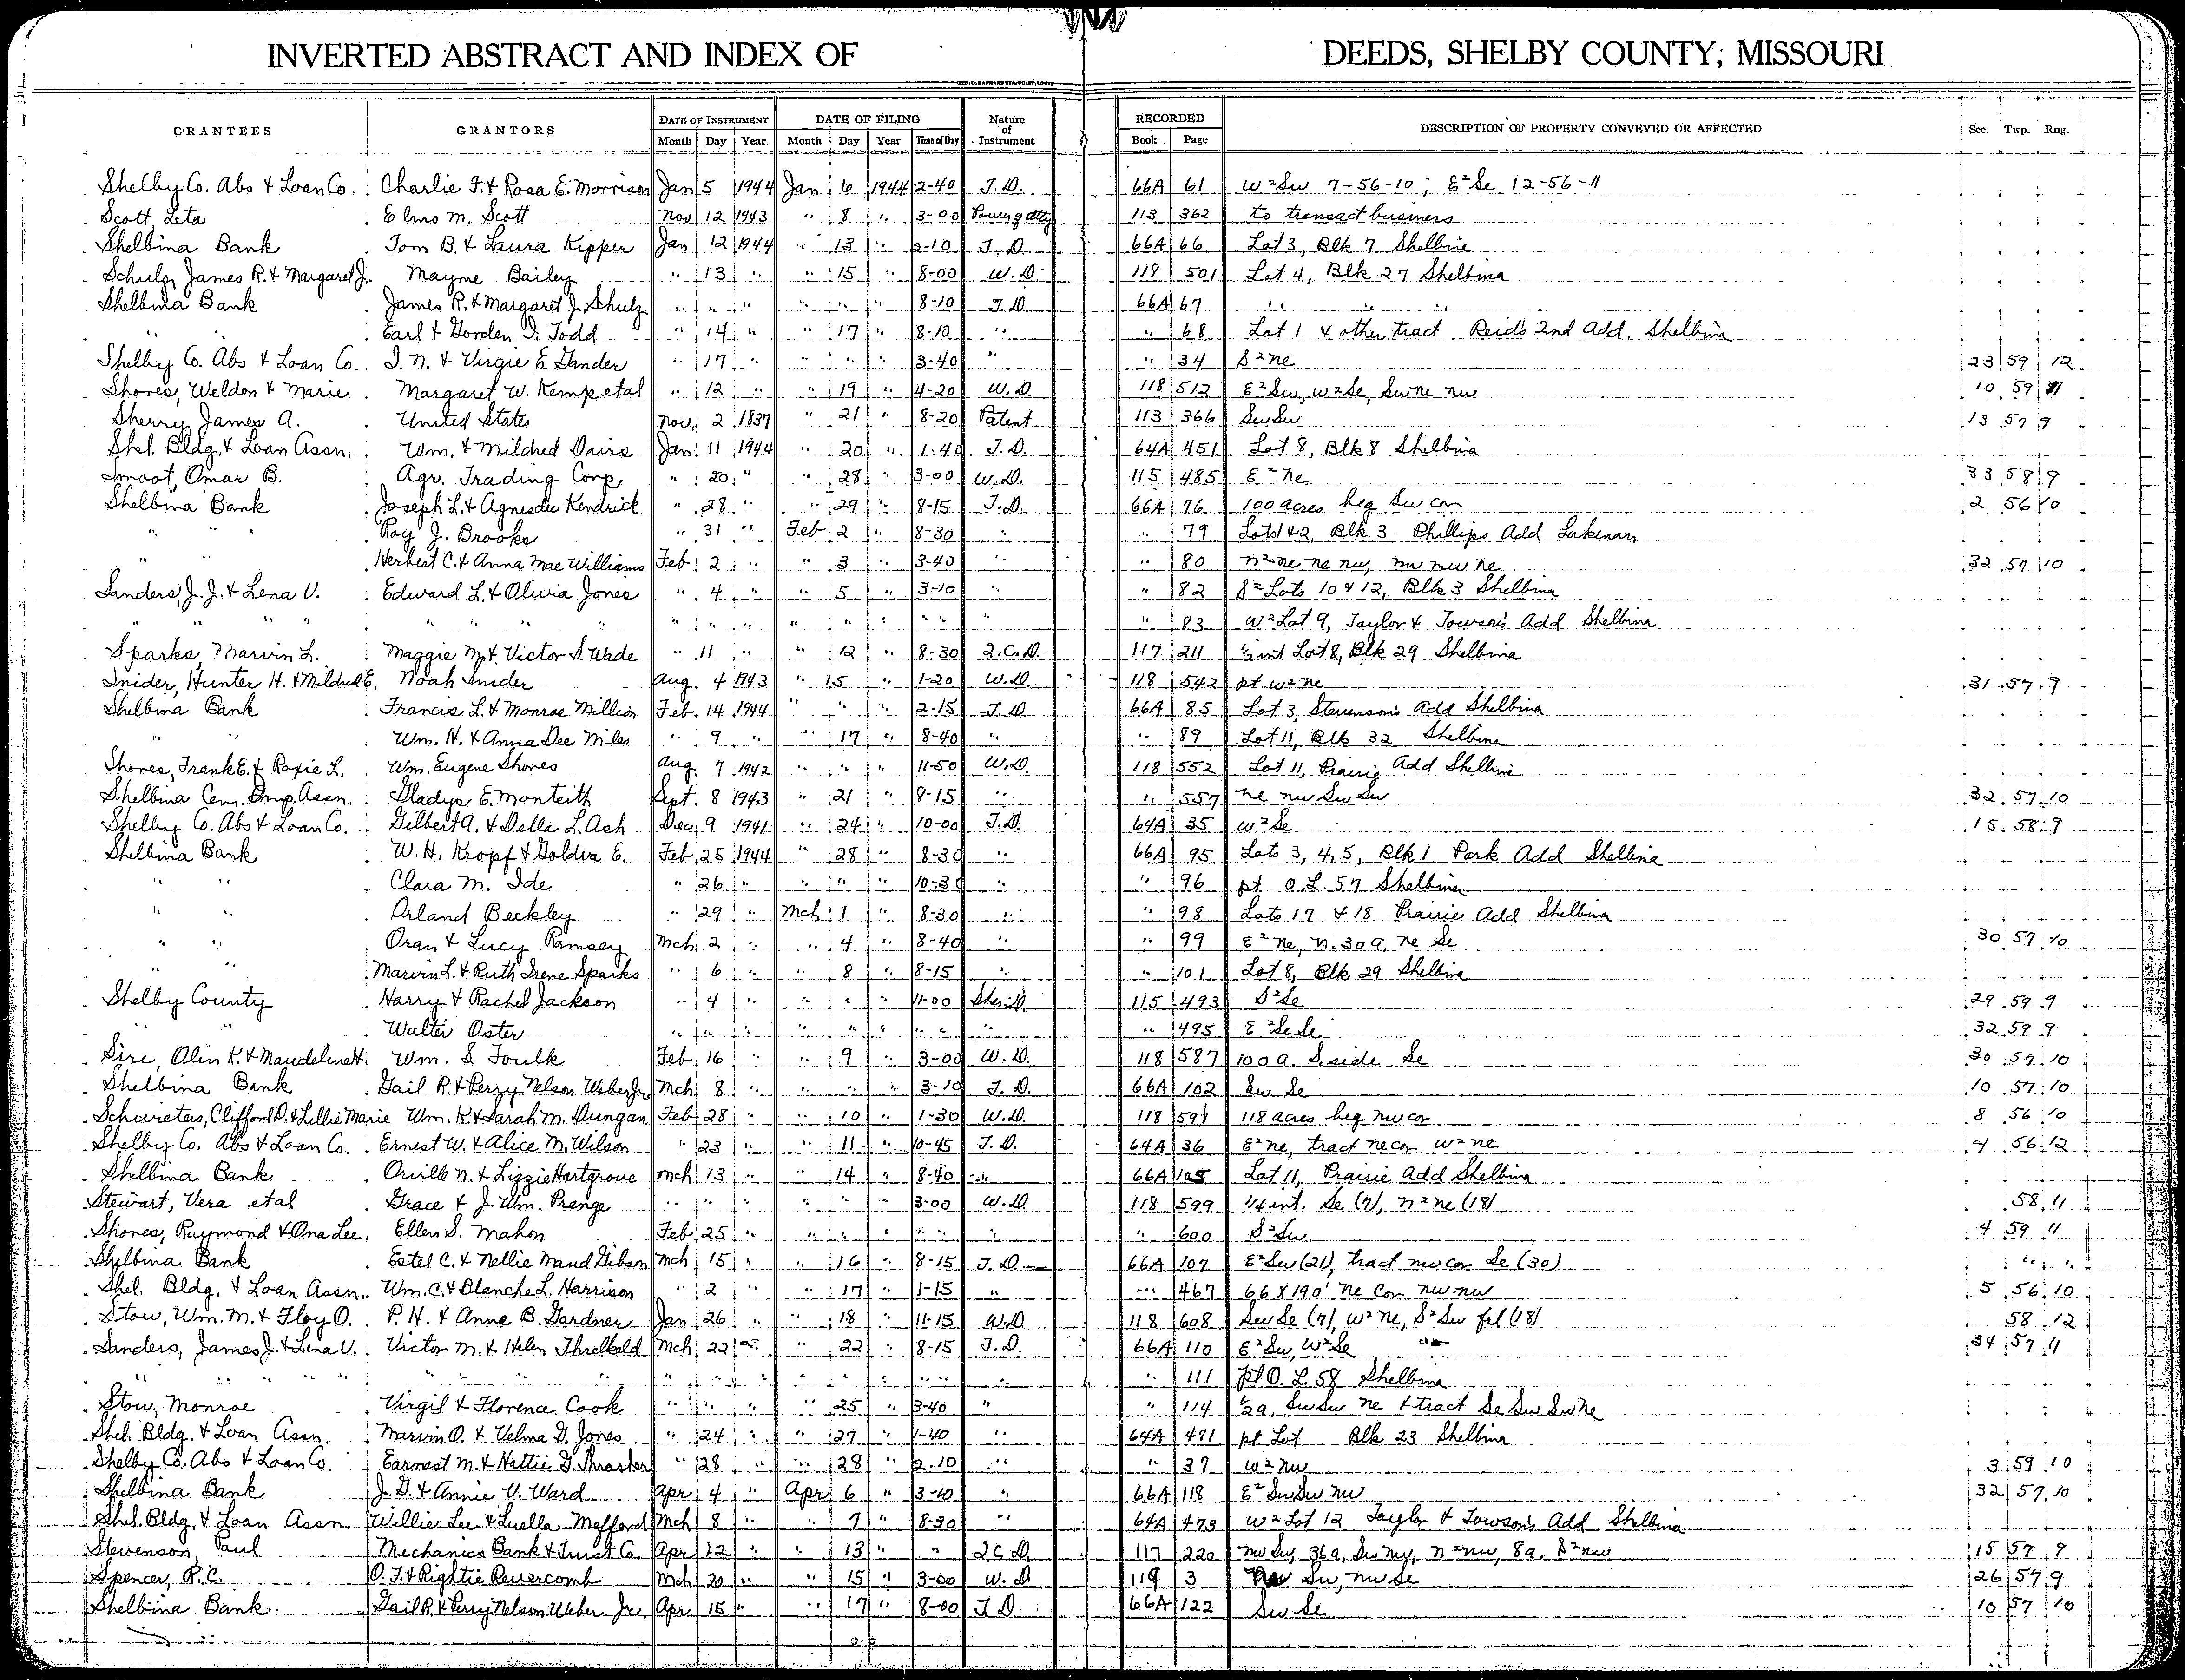 INVERTED ABSTRACT AND INDEX OF DEEDS, SHELBY COUNTY, MISSOURI
GRANTEES GRANTORS DATE OF INSTRUMENT DATE OF FILING Nature of Instrument RECORDED DESCRIPTION OF PROPERTY CONVEYED OR AFFECTED Sec. Twp. Rng.
Month Day Year Month Day Year Time of Day Book Page
Shelby Co. Abs & Loan Co. Charlie F. & Rosa E. Morrison Jan 5 1944 Jan 6 1944 2-40 T.D. 66A 61 W2Sw 7-56-10; E2Se 12-56-11
Scott, Leta Elmo M. Scott Nov 12 1943 " 8 " 3-00 Power of Atty 113 362 to transact business
Shelbina Bank Tom B. & Laura Kipper Jan 12 1944 " 13 " 2-10 T.D. 66A 66 Lot 3, Blk 7 Shelbina
Schulz, James R. & Margaret J. Mayme Bailey " 13 " " 15 " 8-00 W.D. 118 501 Lot 4, Blk 27 Shelbina
Shelbina Bank James R. & Margaret J. Schulz " " " " " " 8-10 T.D. 66A 67 " " "
" " Earl & Gorden I. Todd " 14 " " 17 " 8-10 " " 68 Lot 1 & other tract Reid's 2nd Add. Shelbina
Shelby Co. Abs & Loan Co. I. N. & Virgie E. Gander " 17 " " " " 3-40 " " 34 S2Ne 23 59 12
Shores, Weldon & Marie Margaret W. Kemp etal " 12 " " 19 " 4-20 W.D. 118 512 E2Sw, W2Se, Swne nw 10 59 11
Sherry, James A. United States Nov. 2 1837 " 21 " 8-20 Patent 113 366 SwSw 13 57 9
Shel. Bldg. & Loan Assn. Wm. & Mildred Davis Jan. 11 1944 " 20 " 1-40 T.D. 64A 451 Lot 8, Blk 8 Shelbina
Smoot, Omar B. Agr. Trading Corp " 20 " " 28 " 3-00 W.D. 115 485 E2 Ne 33 58 9
Shelbina Bank Joseph L. & Agnesdee Kendrick " 28 " " 29 " 8-15 T.D. 66A 76 100 acres beg Sw cor 2 56 10
" " Roy J. Brooks " 31 " Feb 2 " 8-30 " " 79 Lots 1 & 2, Blk 3 Phillips Add Lakenan
" " Herbert C. & Anna Mae Williams Feb. 2 " " 3 " 3-40 " " 80 N2 ne ne nw, nw nw ne 32 57 10
Sanders, J. J. & Lena V. Edward L. & Olivia Jones " 4 " " 5 " 3-10 " " 82 S2 Lots 10 & 12, Blk 3 Shelbina
" " " " " " " " " " " " " " " " 83 W2 Lot 9, Taylor & Towson's Add Shelbina
Sparks, Marvin L. Maggie M. & Victor S. Wade " 11 " " 12 " 8-30 Q.C.D. 117 211 ½ int Lot 8, Blk 29 Shelbina
Snider, Hunter H. & Mildred E. Noah Snider Aug. 4 1943 " 15 " 1-20 W.D. 118 542 pt W2 ne 31 57 9
Shelbina Bank Francis L. & Monroe Million Feb. 14 1944 " " " 2-15 T.D. 66A 85 Lot 3, Stevenson's Add Shelbina
" " Wm. H. & Anna Dee Miles " 9 " " 17 " 8-40 " " 89 Lot 11, Blk 32 Shelbina
Shores, Frank E. & Roxie L. Wm. Eugene Shores Aug. 7 1942 " " " 11-50 W.D. 118 552 Lot 11, Prairie Add Shelbina
Shelbina Cem. Imp. Assn. Gladys E. Monteith Sept. 8 1943 " 21 " 8-15 " " 557 Ne nw Sw Sw 32 57 10
Shelby Co. Abs & Loan Co. Gilbert A. & Della L. Ash Dec. 9 1941 " 24 " 10-00 T.D. 64A 35 W2Se 15 58 9
Shelbina Bank W. H. Kropf & Goldia E. Feb. 25 1944 " 28 " 8-30 " 66A 95 Lots 3, 4, 5, Blk 1 Park Add Shelbina
" " Clara M. Ide " 26 " " " " 10-30 " " 96 pt O.L. 57 Shelbina
" " Orland Beckley " 29 " Mch 1 " 8-30 " " 98 Lots 17 & 18 Prairie Add Shelbina
" " Oran & Lucy Ramsey Mch. 2 " " 4 " 8-40 " " 99 E2 Ne, N. 30a, Ne Se 30 57 10
" " Marvin L. & Ruth Irene Sparks " 6 " " 8 " 8-15 " " 101 Lot 8, Blk 29 Shelbina
Shelby County Harry & Rachel Jackson " 4 " " " " 11-00 Sher.D. 115 493 S2Se 29 59 9
" " Walter Oster " " " " " " " " " 495 E2SeSe 32 59 9
Sire, Olin K. & Maudeline H. Wm. S. Foulk Feb. 16 " " 9 " 3-00 W.D. 118 587 100 a. S. side Se 30 59 10
Shelbina Bank Gail R. & Perry Nelson Weber Jr. Mch. 8 " " " " 3-10 T.D. 66A 102 Sw Se 10 57 10
Schwieters, Clifford D. & Lillie Marie Wm. K. & Sarah M. Dungan Feb 28 " " 10 " 1-30 W.D. 118 591 118 acres beg nw cor 8 56 10
Shelby Co. Abs & Loan Co. Ernest W. & Alice M. Wilson " 23 " " 11 " 10-45 T.D. 64A 36 E2 ne, tract ne cor W2 ne 4 56 12
Shelbina Bank Orville N. & Lizzie Hartgrove Mch. 13 " " 14 " 8-40 " 66A 105 Lot 11, Prairie Add Shelbina
Stewart, Vera etal Grace & J. Wm. Prange " " " " " " 3-00 W.D. 118 599 ¼ int. Se (7), N2 ne (18) 58 11
Shores, Raymond & Ona Lee. Ellen S. Mahon Feb. 25 " " " " " " " 600 S2Sw 4 59 11
Shelbina Bank Estel C. & Nellie Maud Gibson Mch 15 " " 16 " 8-15 T.D. 66A 107 E2Sw (21), tract nw cor Se (30) " "
Shel. Bldg. & Loan Assn. Wm. C. & Blanche L. Harrison " 2 " " 17 " 1-15 " " 467 66 X 190' Ne Cor nw nw 5 56 10
Stow, Wm. M. & Floy O. P. H. & Anne B. Gardner Jan 26 " " 18 " 11-15 W.D 118 608 Sw Se (7), W2 Ne, S2 Sw frl (18) 58 12
Sanders, James J. & Lena V. Victor M. & Helen Threlkeld Mch. 22 " " 22 " 8-15 T.D. 66A 110 E2Sw, W2Se 34 57 11
" " " " " " " " " " " " " " " 111 pt O.L. 58 Shelbina
Stow, Monroe Virgil & Florence Cook " " " " 25 " 3-40 " " 114 ½a, SwSw Ne & tract Se Sw Sw Ne
Shel. Bldg. & Loan Assn. Marvin O. & Velma G. Jones " 24 " " 27 " 1-40 " 64A 471 pt Lot Blk 23 Shelbina
Shelby Co. Abs & Loan Co. Earnest M. & Hattie G. Thrasher " 28 " " 28 " 2-10 " " 37 W2 Nw 3 59 10
Shelbina Bank J. D. & Annie V. Ward Apr. 4 " Apr 6 " 3-10 " 66A 118 E2 SwSw nw 32 57 10
Shel. Bldg. & Loan Assn Willie Lee & Luella Mefford Mch 8 " " 7 " 8-30 " 64A 473 W2 Lot 12 Taylor & Towson's Add Shelbina
Stevenson, Paul Mechanics Bank & Trust Co. Apr 12 " " 13 " " Q.C.D. 117 220 nw Sw, 36a, Sw nw, N2 nw, 8a. S2 nw 15 57 9
Spencer, R.C. O. F. & Rightie Revercomb Mch 20 " " 15 " 3-00 W.D 119 3 Sw, nw Se 26 57 9
Shelbina Bank Gail R. & Perry Nelson Weber Jr. Apr. 15 " " 17 " 8-00 T.D. 66A 122 Sw Se 10 57 10